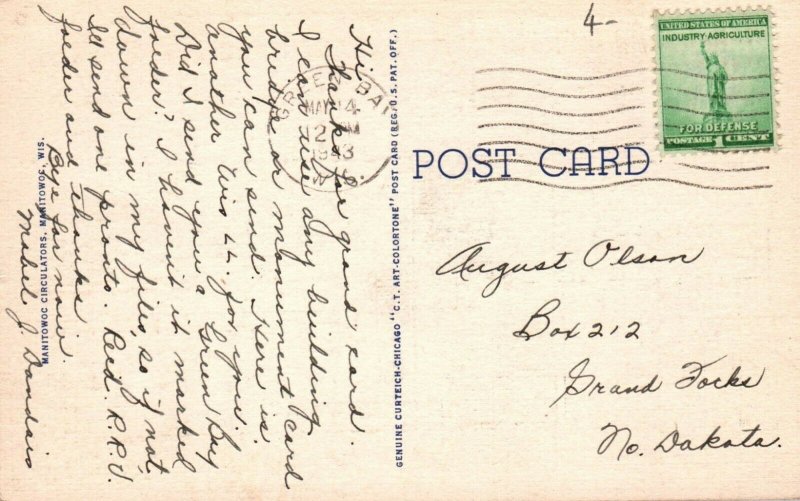 4-
UNITED STATES OF AMERICA
INDUSTRY-AGRICULTURE
FOR DEFENSE
POSTAGE 1 CENT
GREEN BAY
MAY 14
2 PM
1943
WIS.
POST CARD
August Olson
Box 212
Grand Forks
No. Dakota.
Hi.
Thanks for grand card.
I can use any building
bridges or monument card
you can send. Here is
another Wis LL. for you.
Did I send you a Green Bay
folder? I havent it marked
down in my files, so if not,
Ill send one pronto. Recd. R.R.V.
folder and thanks
Bye for now.
Mabel J. Dandais
MANITOWOC CIRCULATORS, MANITOWOC, WIS.
GENUINE CURTEICH-CHICAGO "C.T. ART-COLORTONE" POST CARD (REG. U.S. PAT. OFF.)